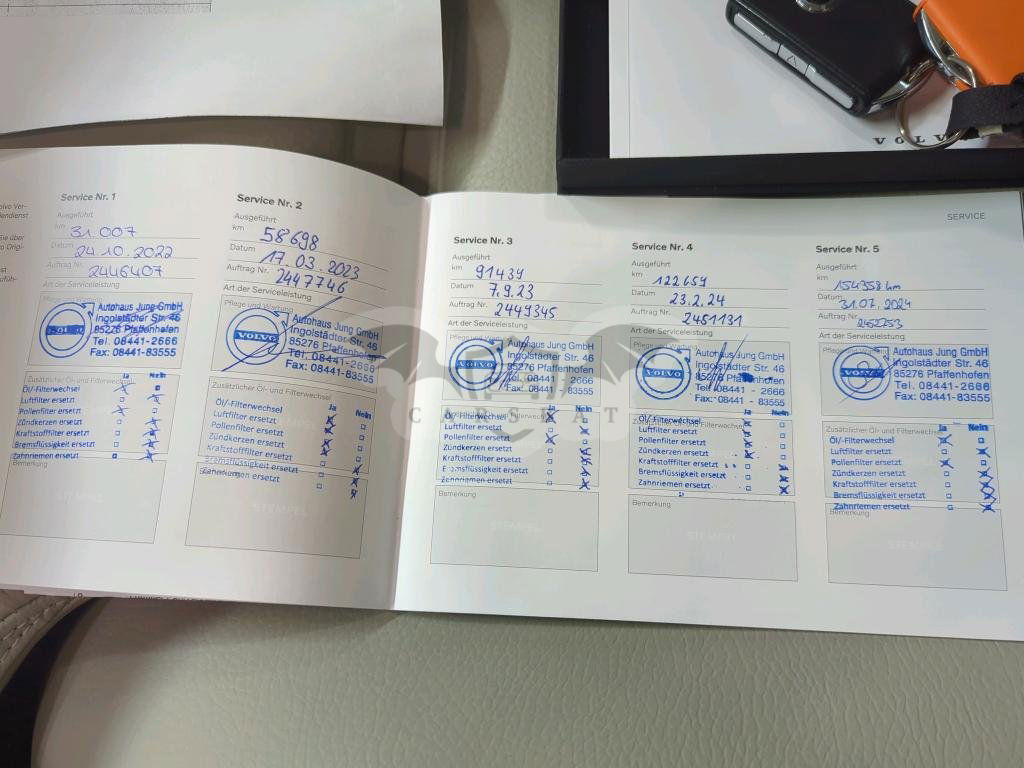 VOLV
SERVICE
Service Nr. 1
Ausgeführt
km 31.007
Datum 24.10.2022
Auftrag Nr. 2446407
Art der Serviceleistung
Autohaus Jung GmbH
Ingolstädter Str. 46
85276 Pfaffenhofen
Tel. 08441-2666
Fax: 08441-83555
Zusätzlicher Öl- und Filterwechsel
Ja Nein
Öl/-Filterwechsel
Luftfilter ersetzt
Pollenfilter ersetzt
Zündkerzen ersetzt
Kraftstofffilter ersetzt
Bremsflüssigkeit ersetzt
Zahnriemen ersetzt
Bemerkung
Service Nr. 2
Ausgeführt
km 58698
Datum 17.03.2023
Auftrag Nr. 2447746
Art der Serviceleistung
Pflege und Wartung
VOLVO
Autohaus Jung GmbH
Ingolstädter Str. 46
85276 Pfaffenhofen
Tel. 08441-2666
Fax: 08441-83555
Zusätzlicher Öl- und Filterwechsel
Ja Nein
Öl/-Filterwechsel
Luftfilter ersetzt
Pollenfilter ersetzt
Zündkerzen ersetzt
Kraftstofffilter ersetzt
Bremsflüssigkeit ersetzt
Zahnriemen ersetzt
Bemerkung
STEMPEL
Service Nr. 3
Ausgeführt
km 91439
Datum 7.9.23
Auftrag Nr. 2449345
Art der Serviceleistung
VOLVO
Autohaus Jung GmbH
Ingolstädter Str. 46
85276 Pfaffenhofen
Tel. 08441 - 2666
Fax: 08441 - 83555
Ja Nein
Öl/-Filterwechsel
Luftfilter ersetzt
Pollenfilter ersetzt
Zündkerzen ersetzt
Kraftstofffilter ersetzt
Bremsflüssigkeit ersetzt
Zahnriemen ersetzt
Bemerkung
Service Nr. 4
Ausgeführt
km 122659
Datum 23.2.24
Auftrag Nr. 2451131
Art der Serviceleistung
Pflege und Wartung
VOLVO
Autohaus Jung GmbH
Ingolstädter Str. 46
85276 Pfaffenhofen
Tel. 08441 - 2666
Fax: 08441 - 83555
Ja Nein
Öl/-Filterwechsel
Luftfilter ersetzt
Pollenfilter ersetzt
Zündkerzen ersetzt
Kraftstofffilter ersetzt
Bremsflüssigkeit ersetzt
Zahnriemen ersetzt
Bemerkung
STEMPEL
Service Nr. 5
Ausgeführt
km 154358 km
Datum 31.07.2024
Auftrag Nr.
Art der Serviceleistung
Pflege und Wartung
VOLVO
Autohaus Jung GmbH
Ingolstädter Str. 46
85276 Pfaffenhofen
Tel. 08441-2666
Fax. 08441-83555
Zusätzlicher Öl- und Filterwechsel
Ja Nein
Öl/-Filterwechsel
Luftfilter ersetzt
Pollenfilter ersetzt
Zündkerzen ersetzt
Kraftstofffilter ersetzt
Bremsflüssigkeit ersetzt
Zahnriemen ersetzt
Bemerkung
STEMPEL
CARSTAT